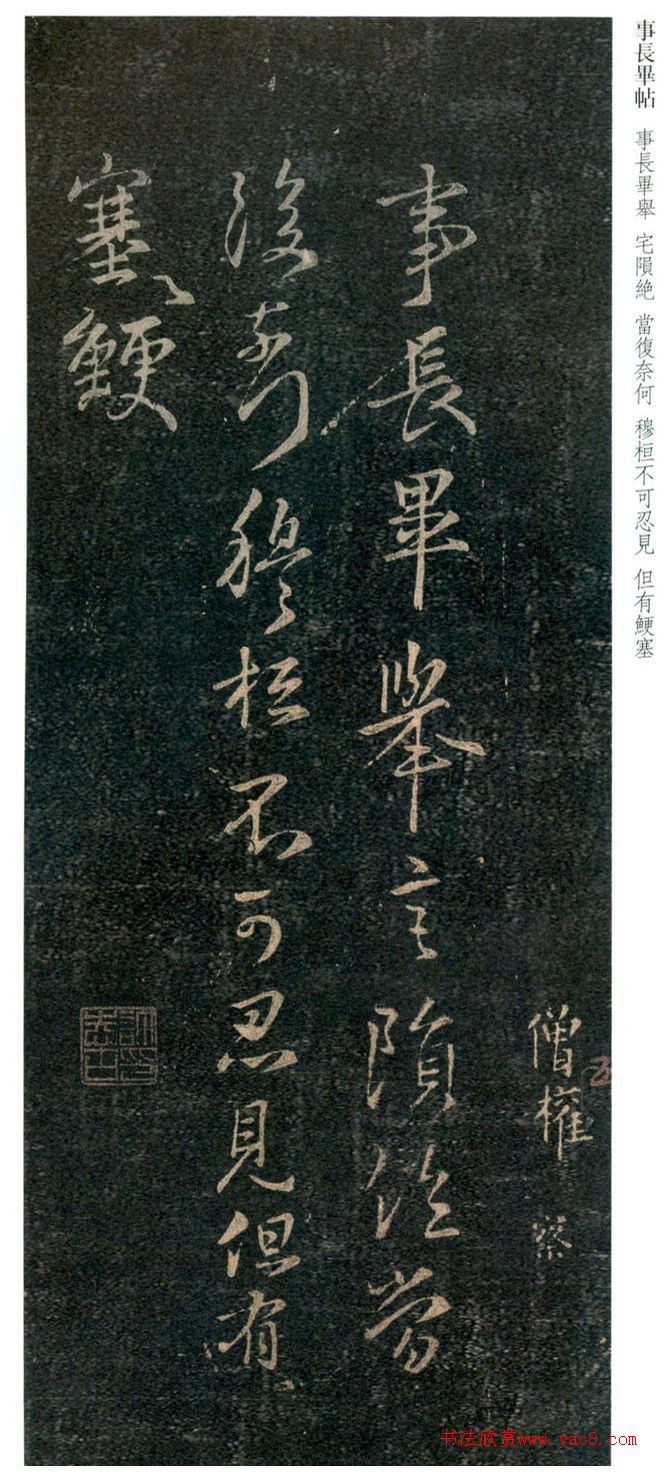 事長畢帖 事長畢舉 宅隕絶 當復奈何 穆桓不可忍見 但有鯁塞
僧權
察
事長畢舉宅隕絶當
復奈何穆桓不可忍見但有
塞鯁
书法欣赏www.yac8.com